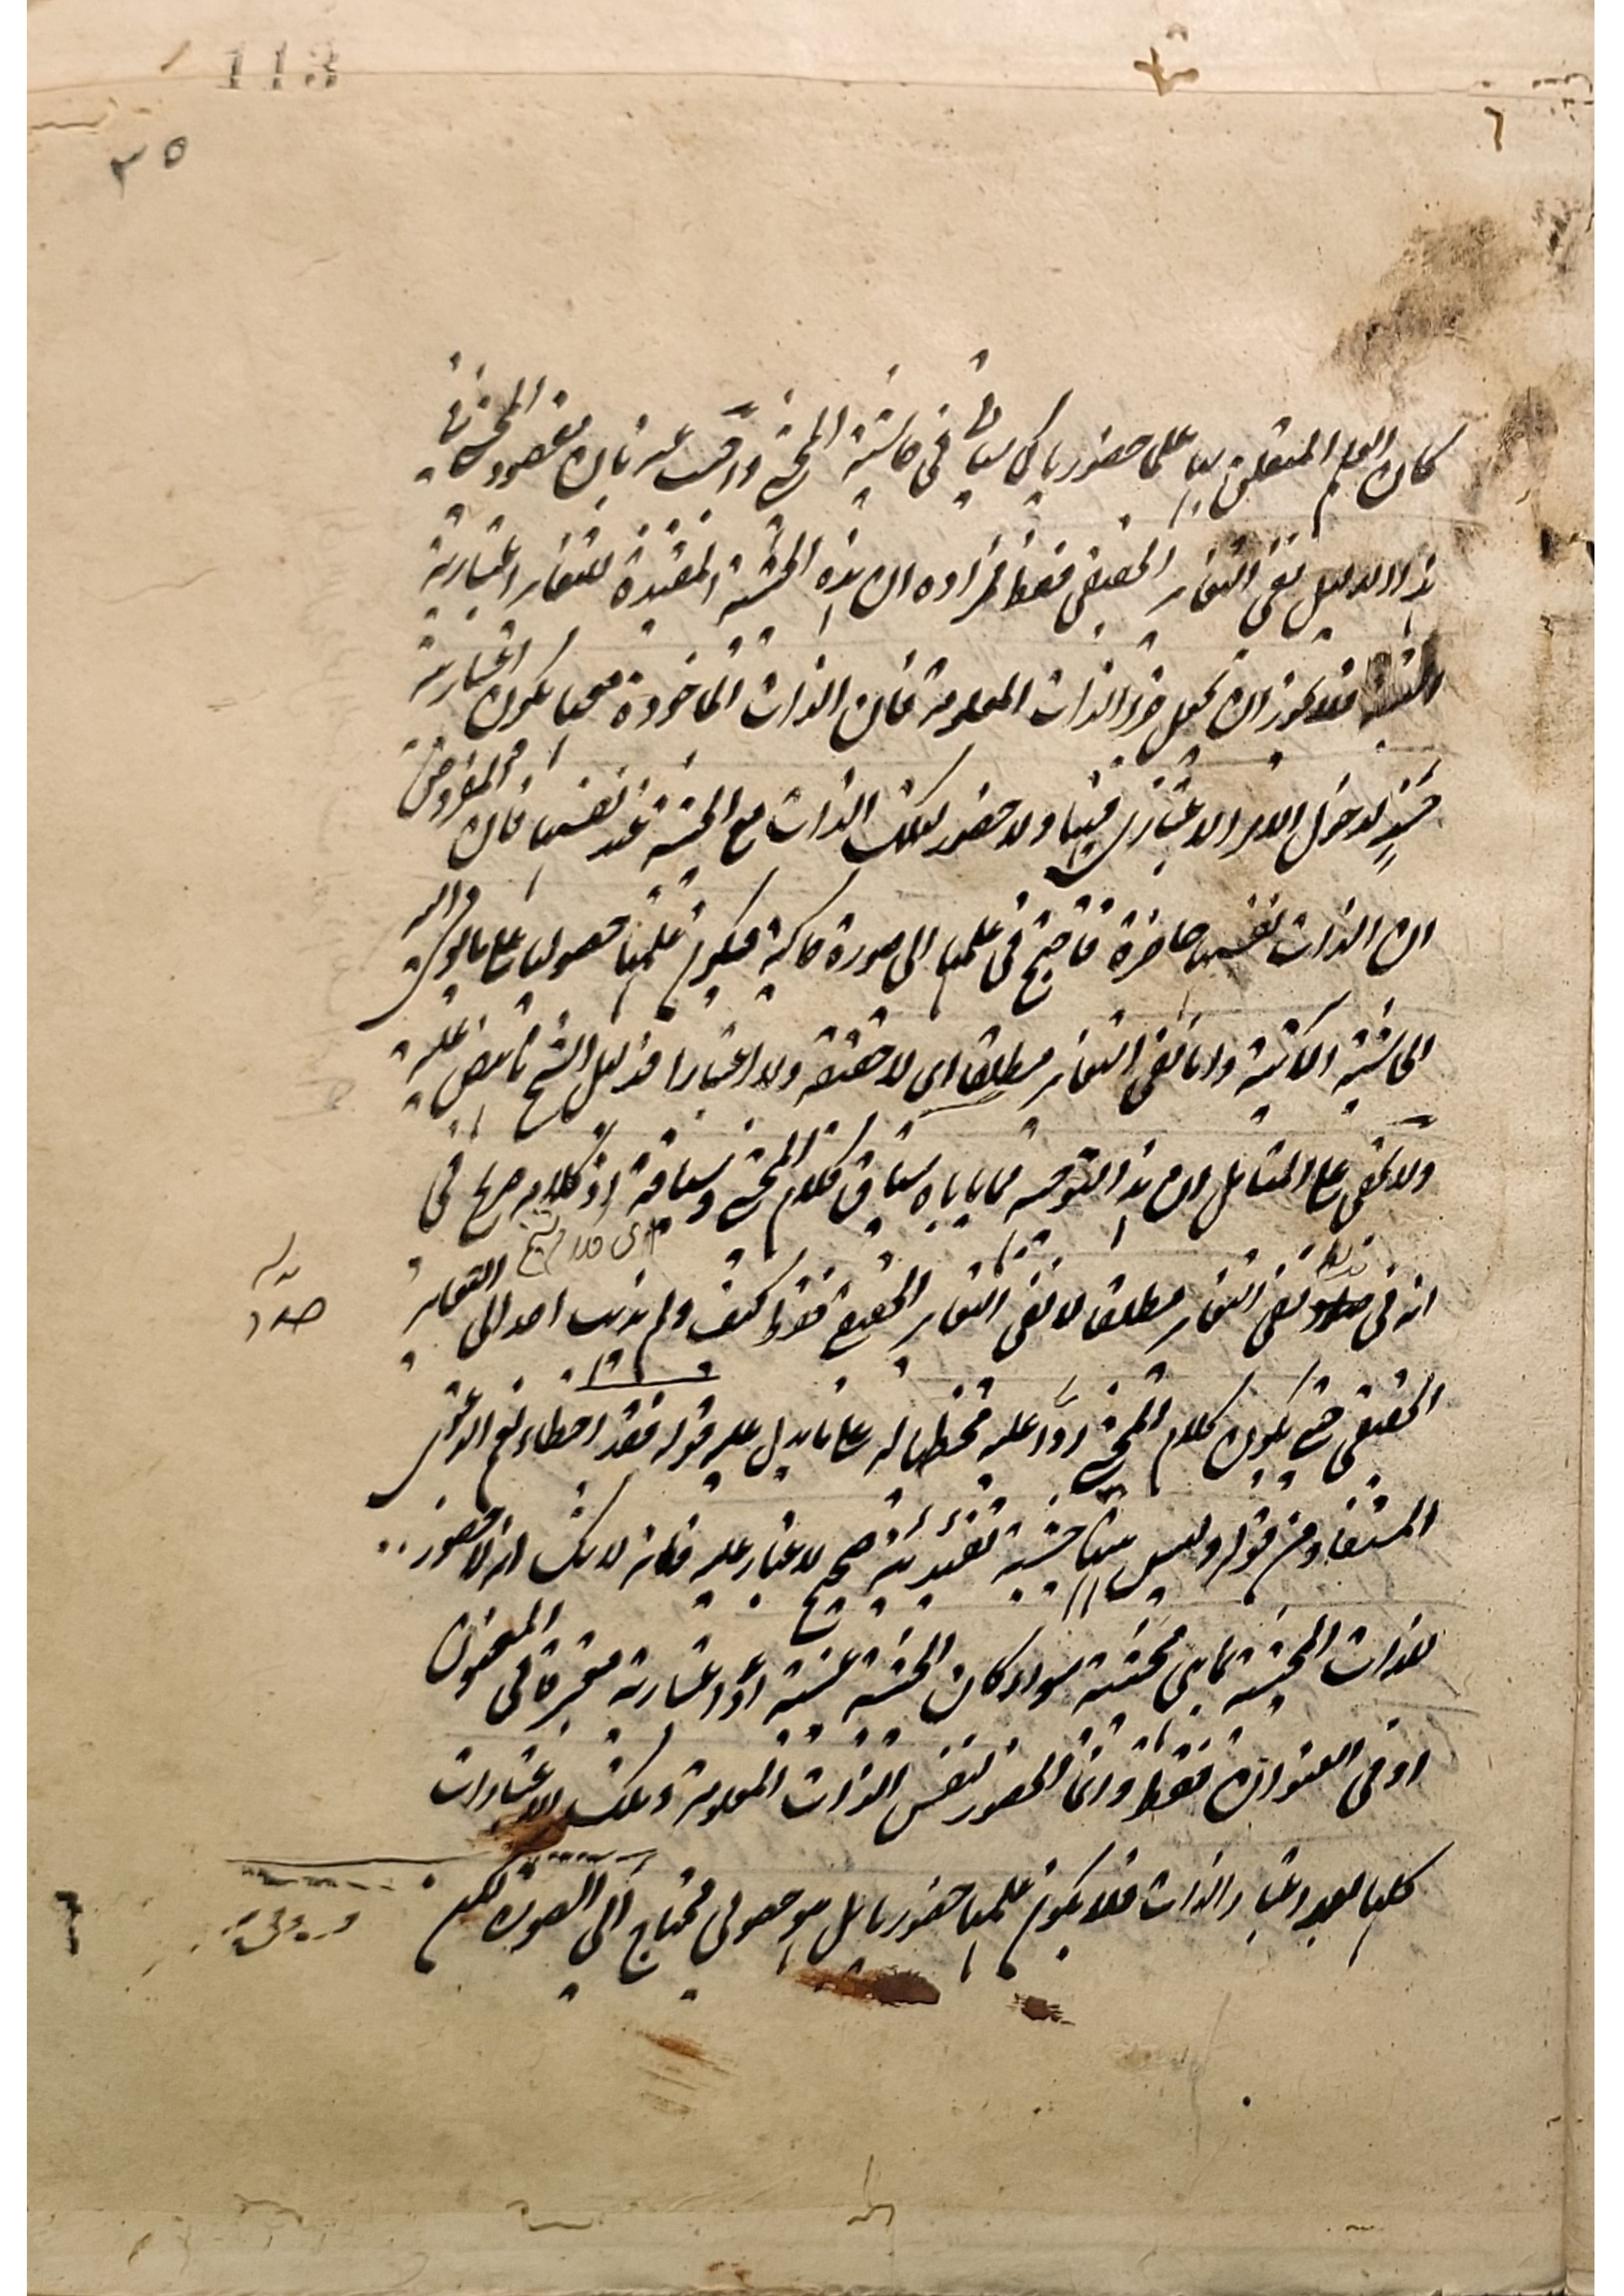 113
٣٥
كان العلم المتعلق بها علما حضوريا كما سيأتي في حاشية المحشي وقد يجب عنه بان مقصود المحشي في
هذا الدليل نفي التغاير الحقيقي فقط فمراده ان هذه الحيثية المقيدة للتغاير اعتبارية
فلا يجوز ان يجعل جزء الذات المعلومة فان الذات الماخوذة معها يكون اعتبارية
حينئذ لدخول الامر الاعتباري فيها ولا حضور لتلك الذات مع الحيثية عند نفسها فان المفروض
ان الذات نفسها حاضرة فاحتيج في علمها الى صورة حاكية فيكون علمها حصوليا على ما يومى اليه
الحاشية الآتية واما نفي التغاير مطلقا اى لا حقيقة ولا اعتبارا فدليل الشيخ ناهض عليه
ولا يخفى على المتامل ان هذا التوجيه مما ياباه سياق كلام المحشي وسباقه اذ كلامه صريح في
انه في صدد نفي التغاير مطلقا لا نفي التغاير الحقيقي فقط كيف ولم يذهب احد الى التغاير
الحقيقي حتى يكون كلام المحشي ردا عليه وتخطية له على ما يدل عليه قوله فقد اخطاء نعم الدعوى
المستفاد من قوله وليس بينها حيثية تقييدية صحيح لا غبار عليه فانه لا شك انه لا حضور
للذات المحيثة بما هي محيثة سواء كان الحيثية عينية او اعتبارية معتبرة في المعنون
او في العنوان فقط وانما الحضور لنفس الذات المعلومة وتلك الاعتبارات
كلها بعد اعتبار الذات فلا يكون علمها حضوريا بل هو حصولي محتاج الى الصورة نعم